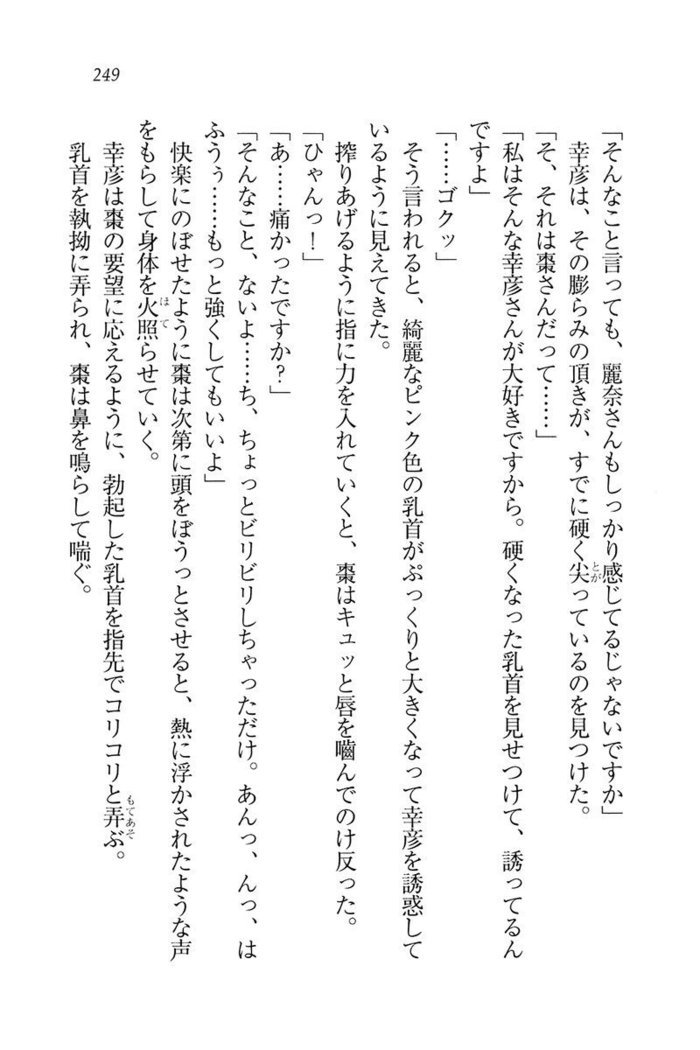 249
「そんなこと言っても、麗奈さんもしっかり感じてるじゃないですか」
とが
幸彦は、その膨らみの頂きが、すでに硬く尖っているのを見つけた。
「そ、それは棗さんだって……」
「私はそんな幸彦さんが大好きですから。硬くなった乳首を見せつけて、誘ってるん
ですよ」
「……ゴクッ」
そう言われると、綺麗なピンク色の乳首がぷっくりと大きくなって幸彦を誘惑して
いるように見えてきた。
搾りあげるように指に力を入れていくと、棗はキュッと唇を嚙んでのけ反った。
「ひゃんっ！」
「あ……痛かったですか？」
「そんなこと、ないよ……ち、ちょっとビリビリしちゃっただけ。あんっ、んっ、は
ふうぅ……もっと強くしてもいいよ」
快楽にのぼせたように棗は次第に頭をぼうっとさせると、熱に浮かされたような声
ほて
をもらして身体を火照らせていく。
もてあそ
幸彦は棗の要望に応えるように、勃起した乳首を指先でコリコリと弄ぶ。
乳首を執拗に弄られ、棗は鼻を鳴らして喘ぐ。